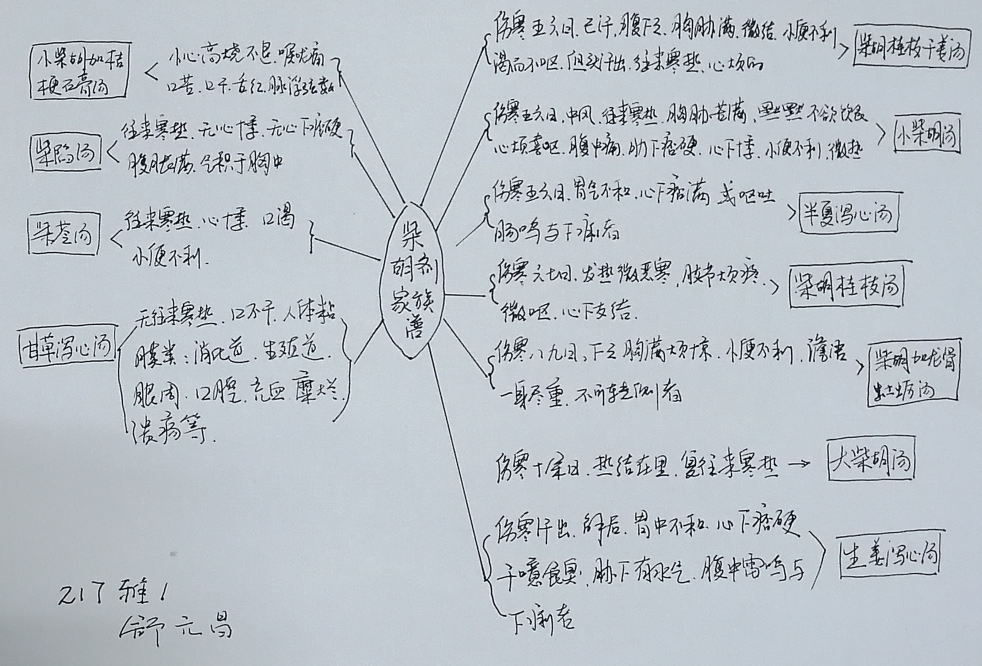 柴胡剂
家族
谱
伤寒五六日,已汗,腹下之,胸胁满,微结,小便不利
渴而不呕,但头汗出,往来寒热,心烦的
柴胡桂枝干姜汤
伤寒五六日,中风,往来寒热,胸胁苦满,嘿嘿不欲饮食
心烦喜呕,腹中痛,胁下痞硬,心下悸,小便不利,微热
小柴胡汤
伤寒五六日,胃气不和,心下痞满,或呕吐
肠鸣与下痢者
半夏泻心汤
伤寒六七日,发热微恶寒,肢节烦疼,
微呕,心下支结.
柴胡桂枝汤
伤寒八九日,下之胸满烦惊,小便不利,谵语
一身尽重,不可转侧者
柴胡加龙骨
牡蛎汤
伤寒十余日,热结在里,复往来寒热 →
大柴胡汤
伤寒汗出,解后,胃中不和,心下痞硬
干噫食臭,胁下有水气,腹中雷鸣与
下痢者
生姜泻心汤
小柴胡加桔
梗石膏汤
高烧不退,喉咙痛
口苦,口干,舌红,脉浮弦数
柴陷汤
往来寒热,无心悸,无心下痞硬
腹胀满,气积于胸中
柴苓汤
往来寒热,心悸,口渴
小便不利.
甘草泻心汤
无往来寒热,口不干,人体粘
膜类:消化道,生殖道,
眼周,口腔,充血,糜烂,
溃疡等.
217雅1
舒元昌